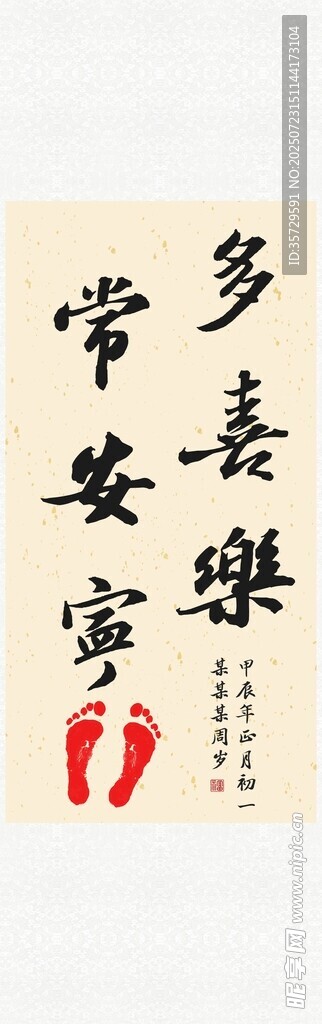 多喜樂
常安寧
甲辰年正月初一
某某某周岁
ID:35729591 NO:20250723151144173104
昵享网 www.nipic.cn